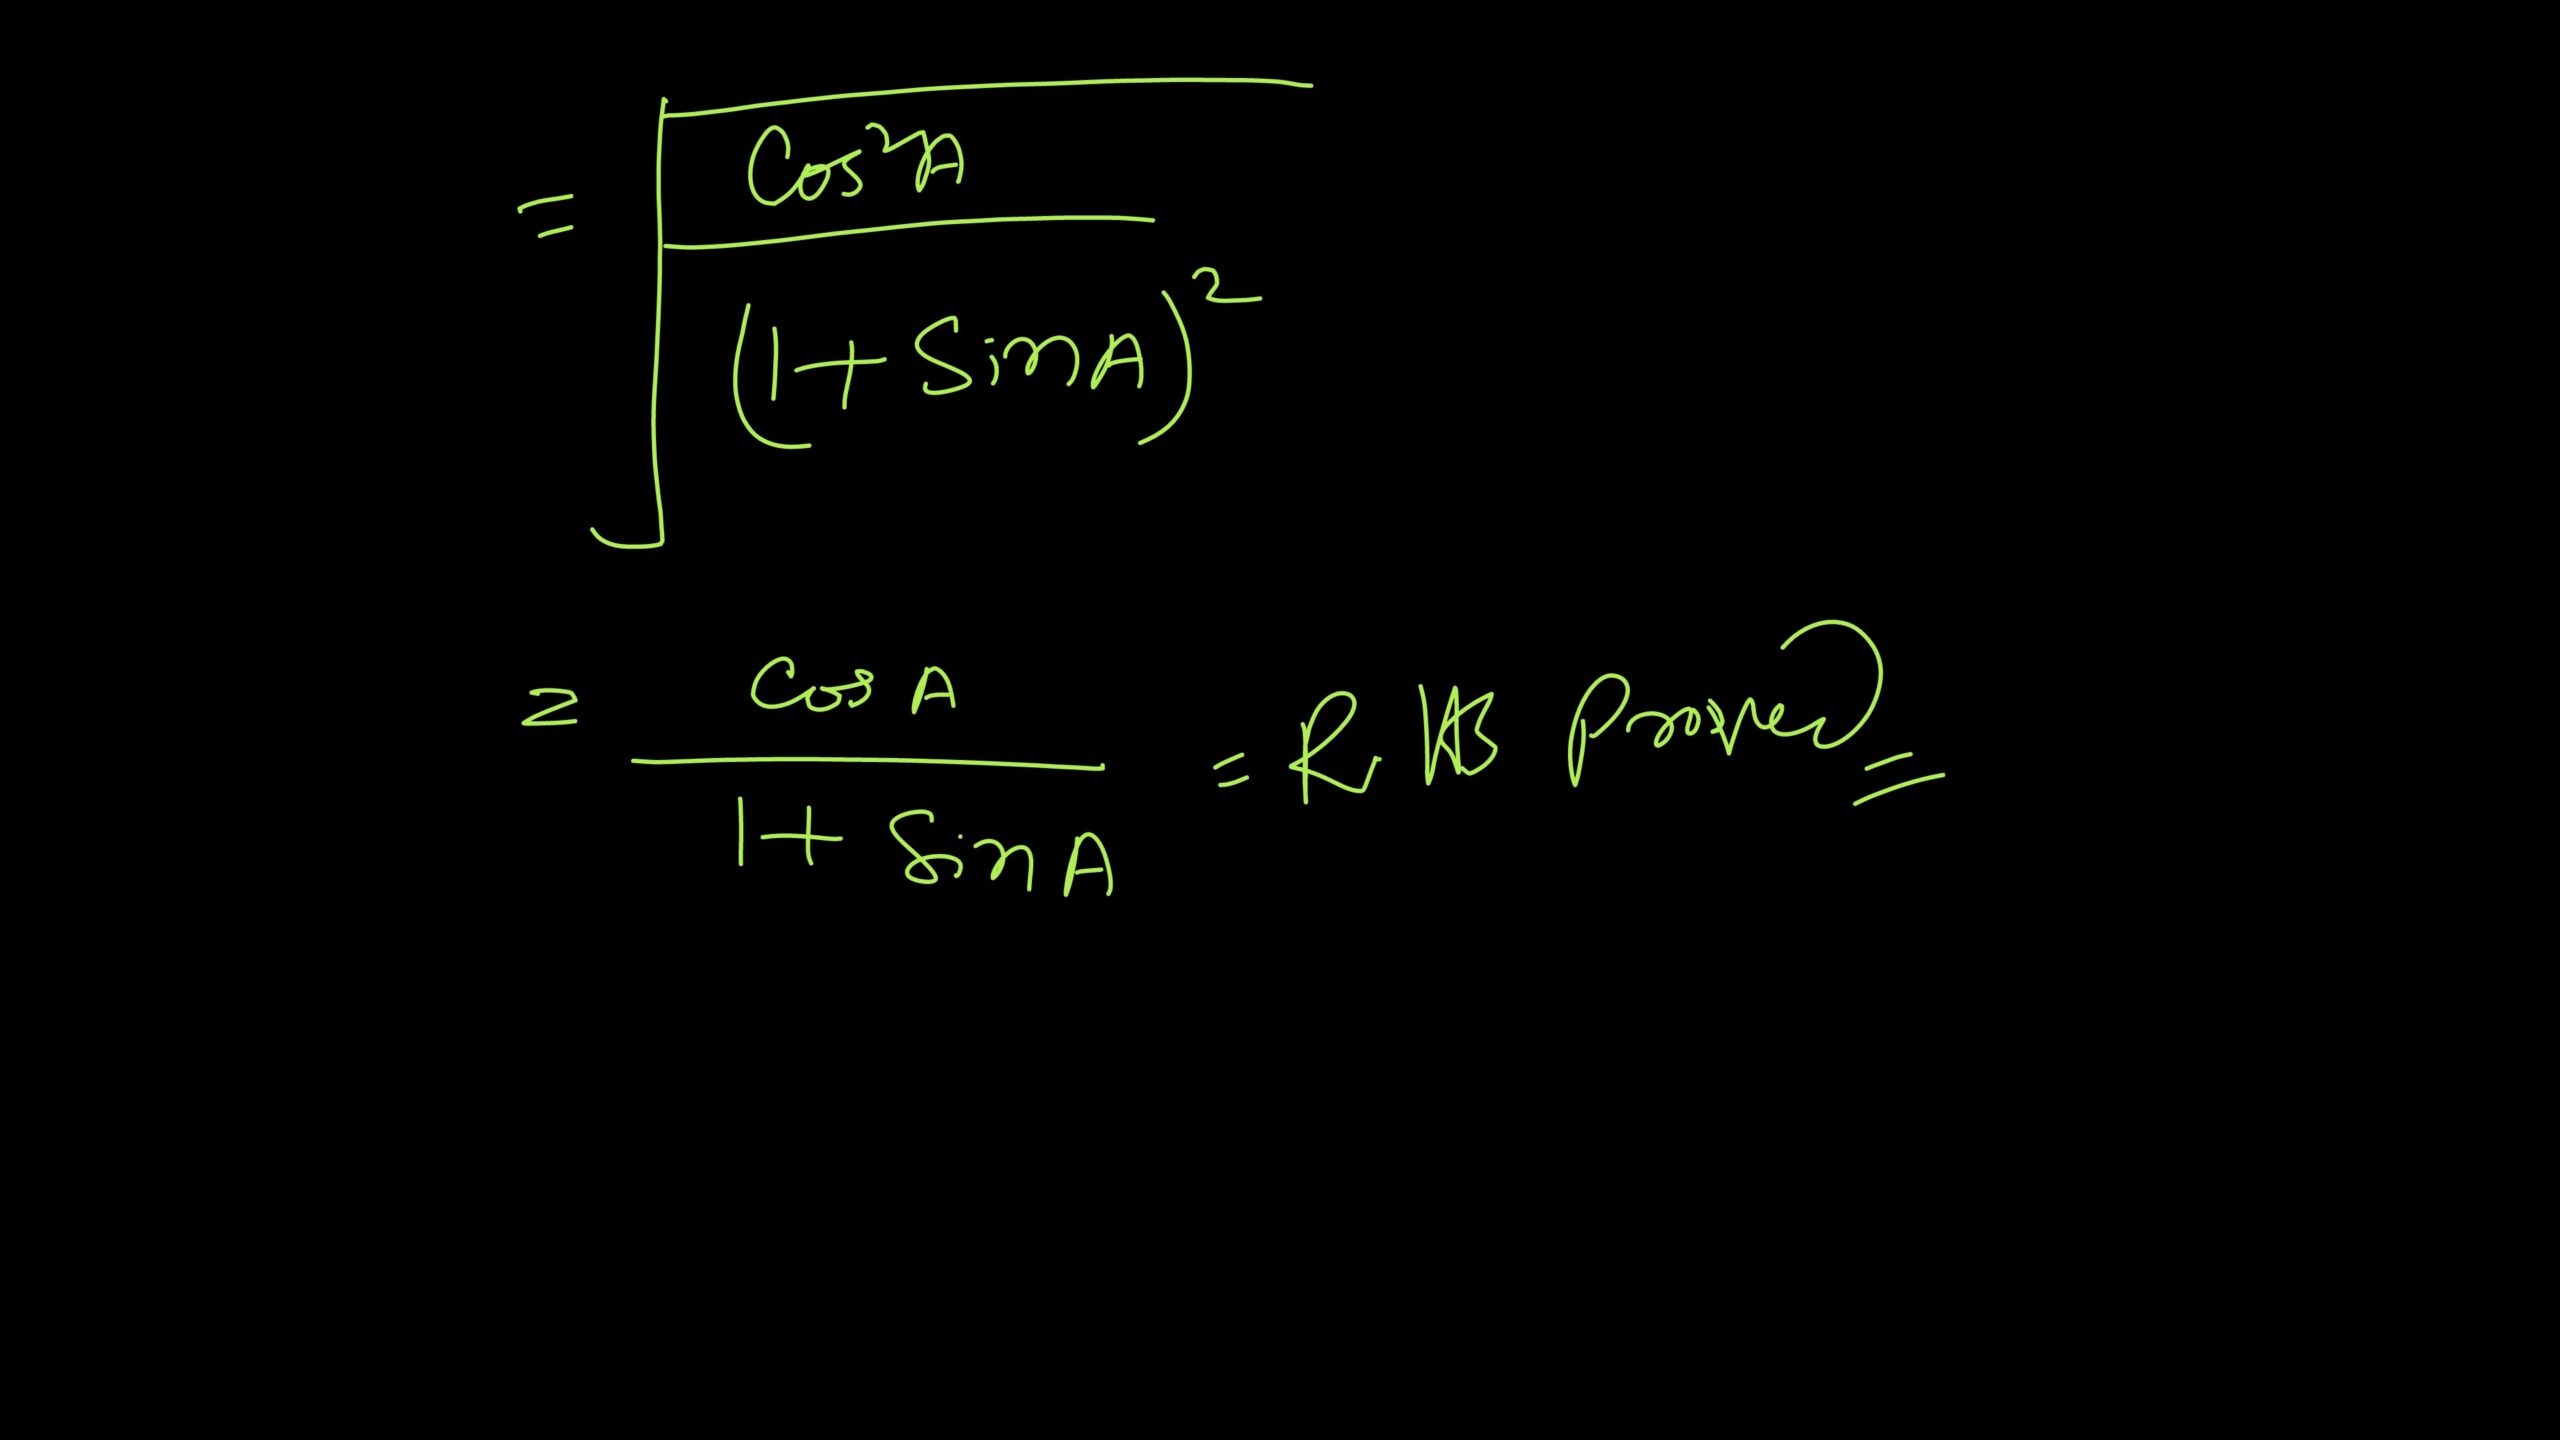 = √(Cos²A / (1 + SinA)²)
= Cos A / 1 + Sin A = RHS Proved